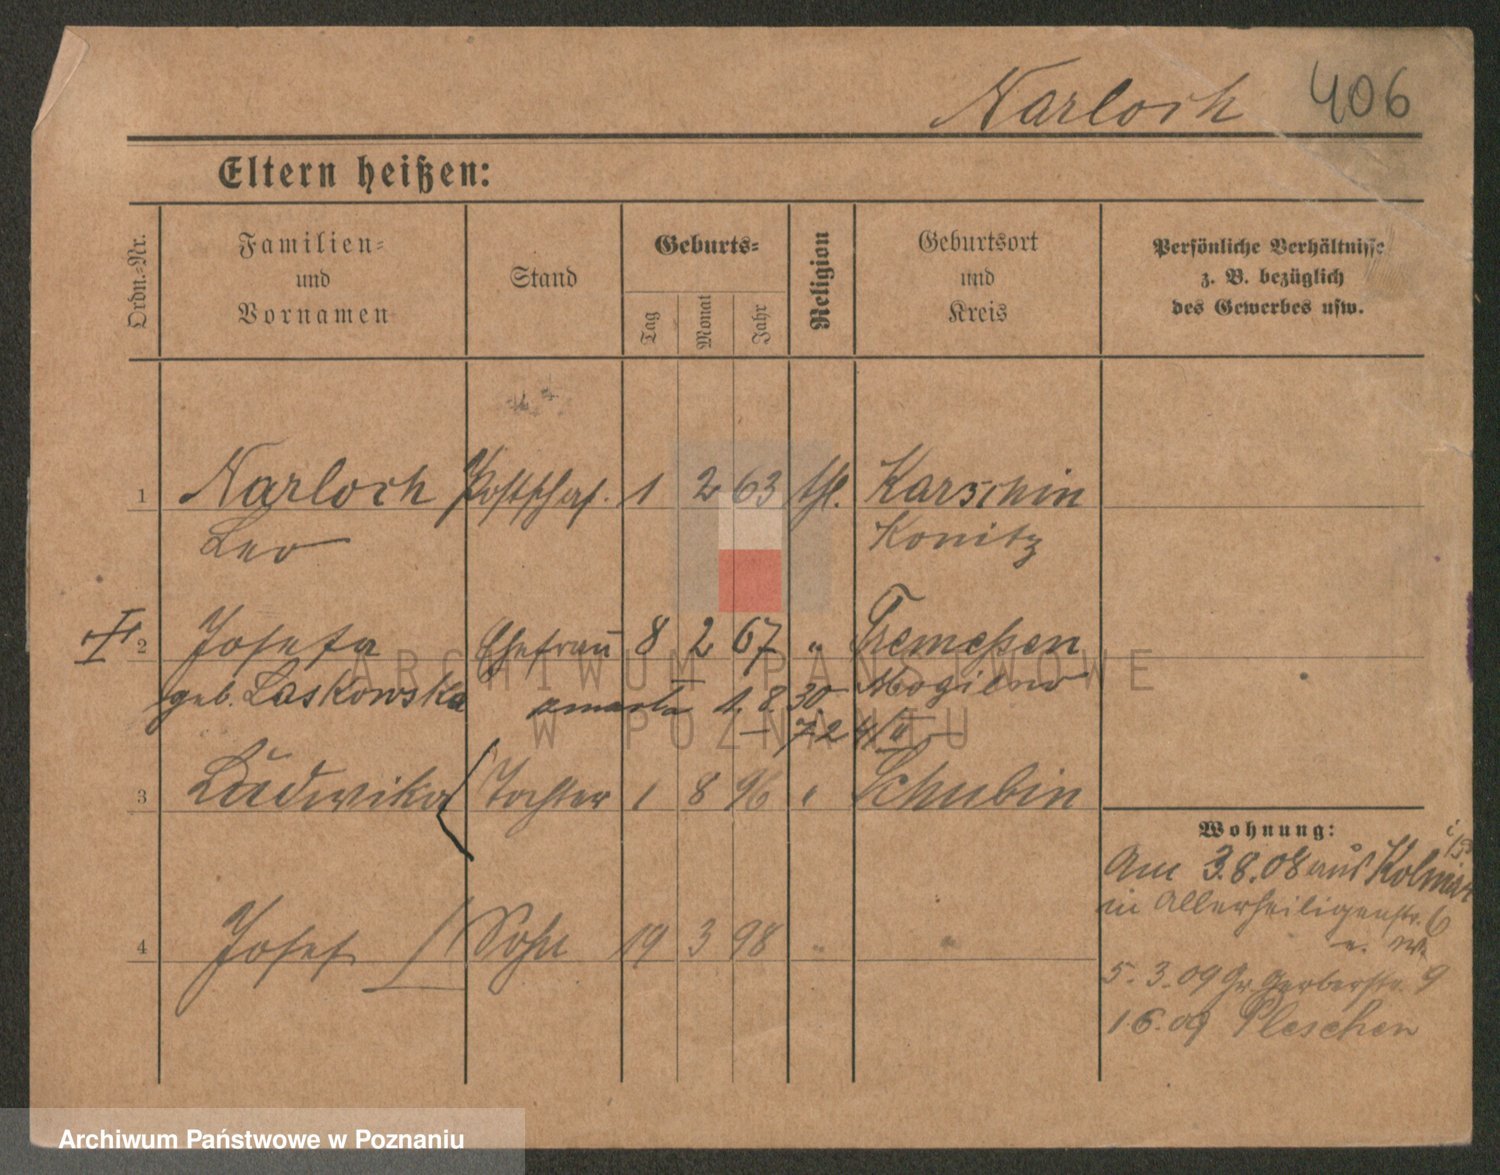 Narloch 406
Eltern heißen:
Ordn.-Nr.
Familien-
und
Vornamen
Stand
Geburts-
Tag
Monat
Jahr
Religion
Geburtsort
und
Kreis
Persönliche Verhältnisse
z. B. bezüglich
des Gewerbes usw.
1 Narloch Postschaf. 1 2 63 kth. Karschin
Leo Konitz
2 Josefa Ehefrau 8 2 67 " Tremeßen
geb. Laskowska Mogilno
zmarła 1.8.30.
3 Ludwika Tochter 1 8 96 " Schubin
4 Josef Sohn 19 3 98 " "
Wohnung:
Am 3.8.08 aus Kolmar
in Allerheiligenstr. 6
5.3.09 Gr. Gerberstr. 9
1.6.09 Pleschen
ARCHIWUM PAŃSTWOWE
W POZNANIU
Archiwum Państwowe w Poznaniu